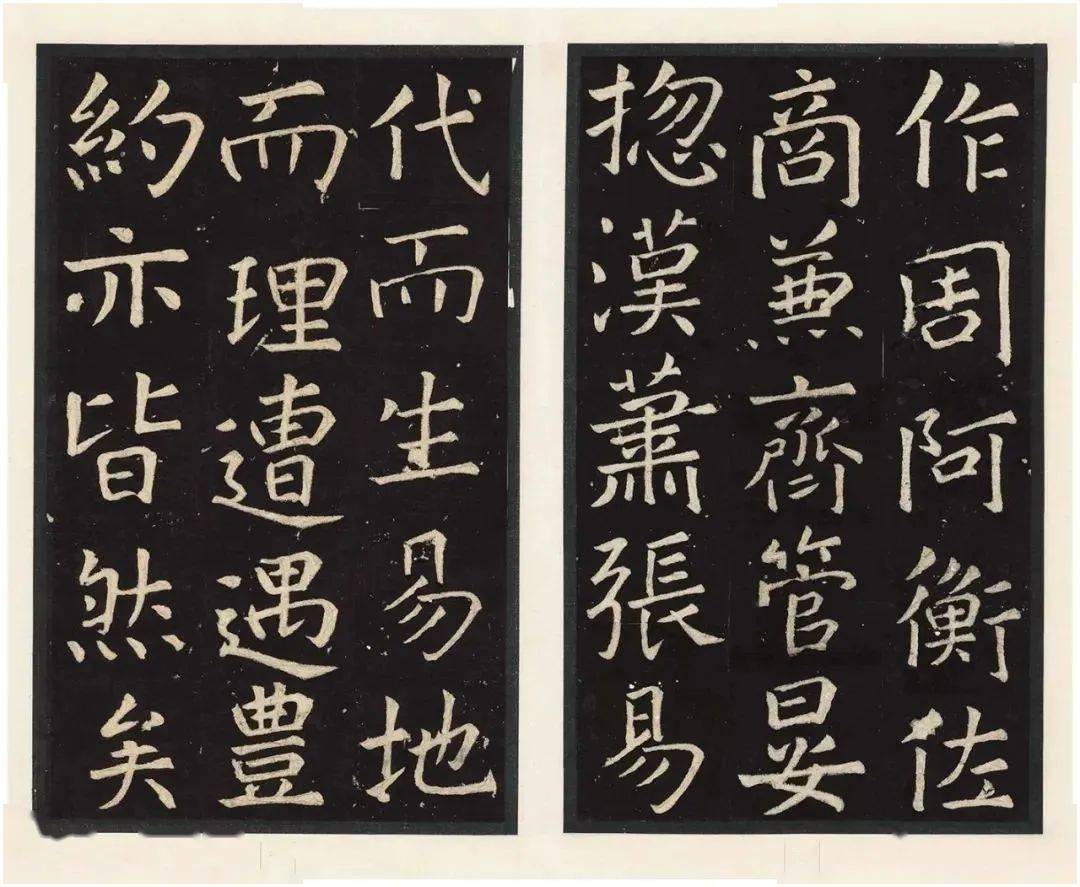 作周阿衡佐
商兼齊管晏
揔漢蕭張易
代而生易地
而理遭遇豊
約亦皆然矣